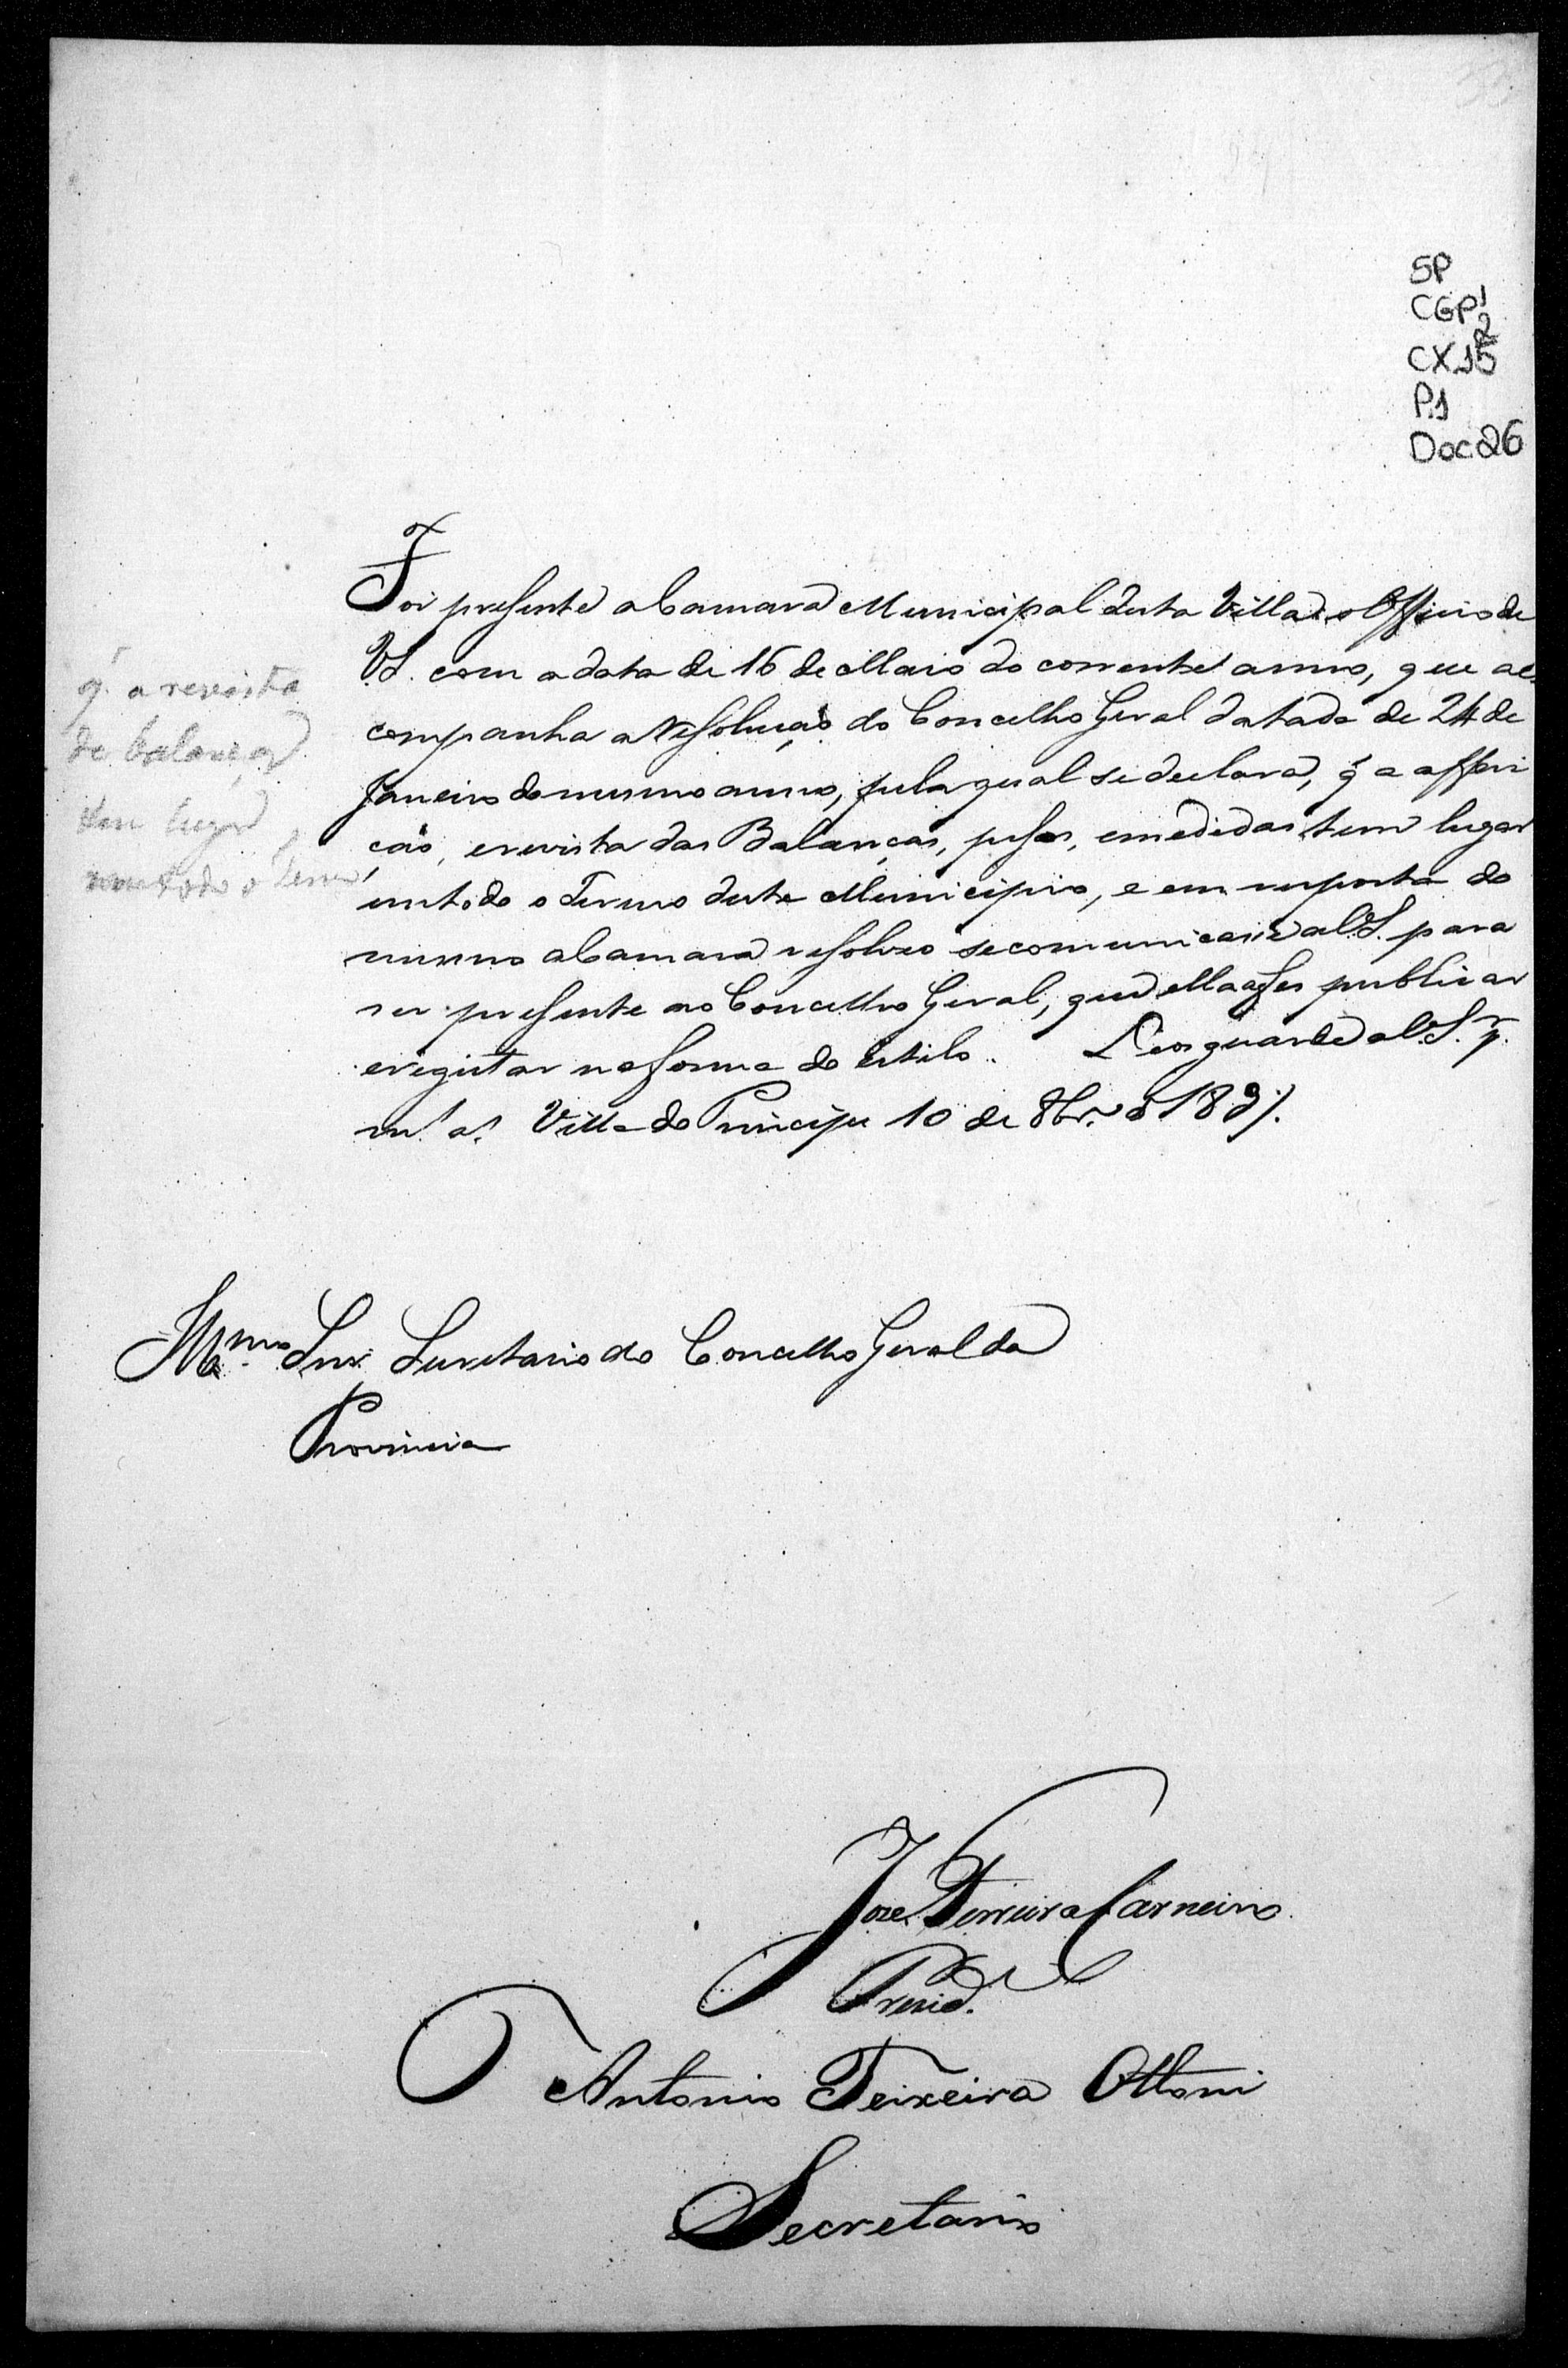 SP
CGP 1/2
CX.15
P.1
Doc. 26
Foi presente a Camara Municipal desta Villa o Officio de
V.S. com a data de 16 de Maio do corrente anno, que ac
companha a Resolução do Concelho Geral datada de 24 de
Janeiro do mesmo anno, pela qual se declara, q̃ a afferi
cão, e revista das Balanças, pesos, e medidas tem lugar
em todo o Termo deste Municipio, e em resposta do
mesmo a Camara resolveo se comunicasse a V.S. para
ser presente ao Concelho Geral, que ella a fes publicar
e registar na forma do estilo. Deos guarde a V.S. p.r
m.s a.s Villa do Principe 10 de 8br.o d
q. a revista
de balanças
tem lugar
em todo o Termo
Ill.mo Snr. Secretario do Concelho Geral da
Provincia
Joze Ferreira Carneiro
Presid.
Antonio Teixeira Ottoni
Secretario